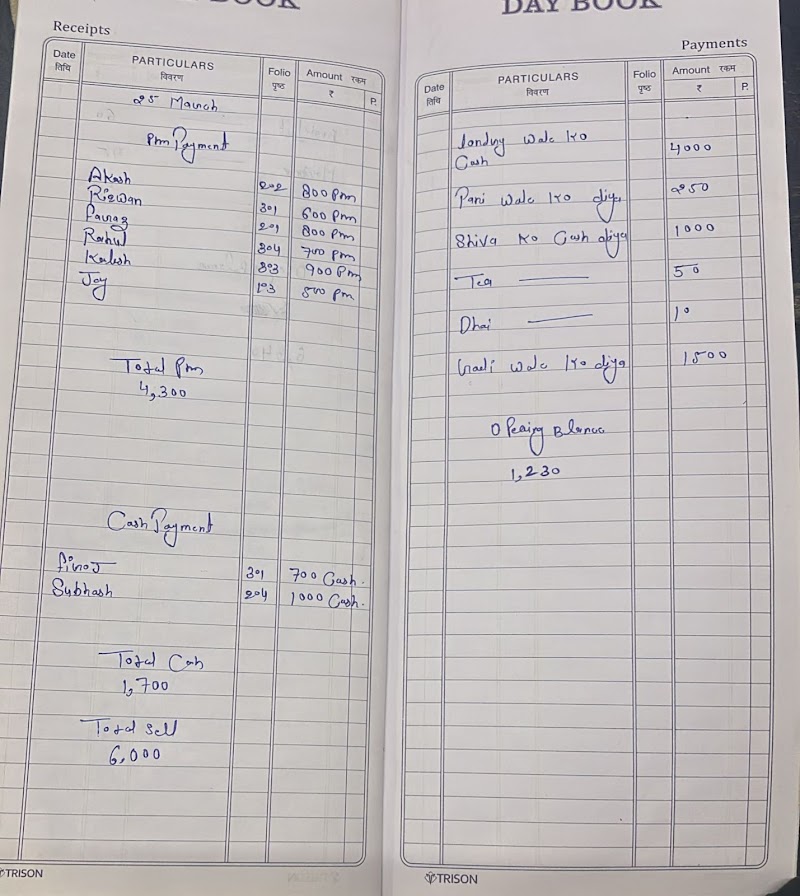 DAY BOOK
Receipts
Date तिथि PARTICULARS विवरण Folio पृष्ठ Amount रकम ₹ P.
25 March
Pm Payment
Akash 202 800 Pm
Rizwan 301 600 Pm
201 800 Pm
Rahul 304 700 Pm
Kalesh 303 900 Pm
Joy 103 500 Pm
Total Pm
4,300
Cash Payment
301 700 Cash.
Subhash 204 1000 Cash.
Total Cash
1,700
Total Sell
6,000
TRISON
DAY BOOK
Payments
Date तिथि PARTICULARS विवरण Folio पृष्ठ Amount रकम ₹ P.
landry wale ko
Cash 4000
Pani wale ko diya 250
Shiva ko Cash diya 1000
Tea — 50
Dhai — 10
Gadi wale ko diya 1500
Opening Blance
1,230
TRISON